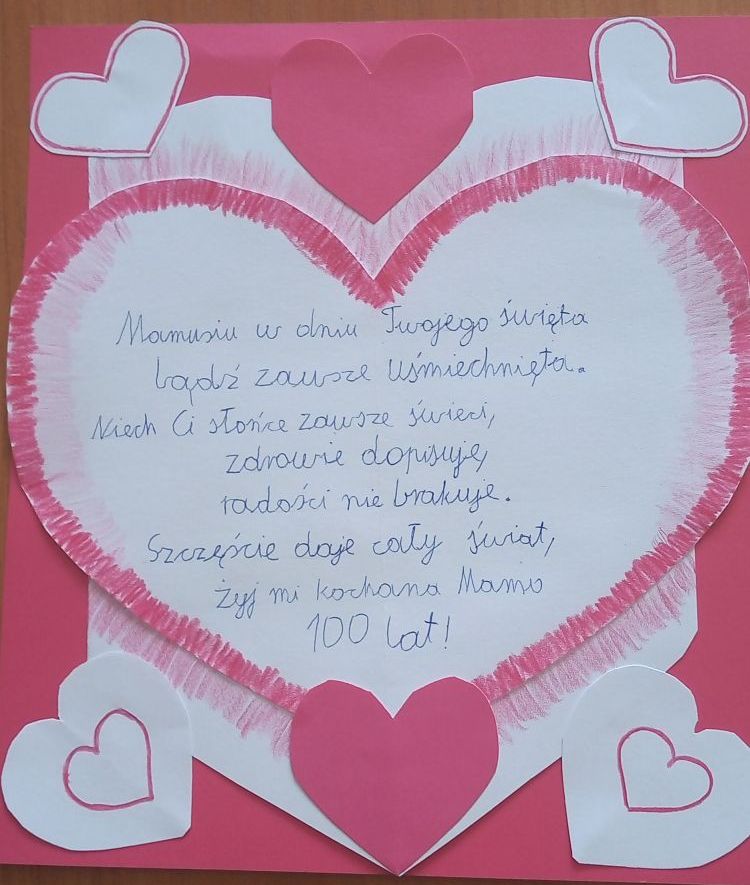 Mamusiu w dniu Twojego święta
bądź zawsze uśmiechnięta.
Niech Ci słońce zawsze świeci,
zdrowie dopisuje,
radości nie brakuje.
Szczęście daje cały świat,
żyj mi kochana Mamo
100 lat!